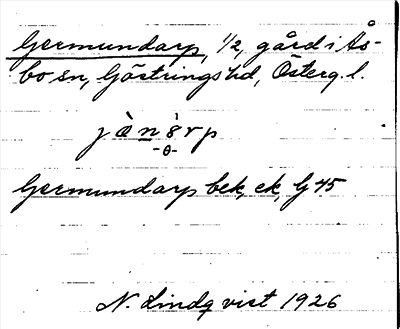 Germundarp, 1/2, gård i Ås-
bo sn, Göstrings hd, Österg. l.
jànàrp
-θ-
Germundarp bek, ek, G 45
N. Lindqvist 1926